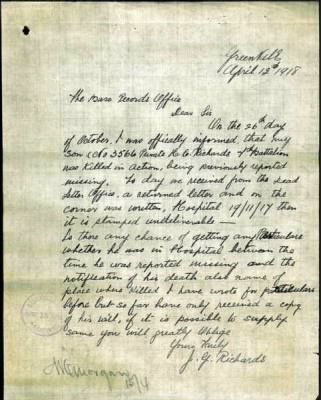 Greenhills
April 12th 1918
The Base Records Office
Dear Sir
On the 26th day
of October, I was offically informed, that my
Son (No 3566 Private H. G. Richards 7th Battalion
was Killed in Action, being previously reported
missing. To day we received from the dead
letter Office, a returned letter and on the
corner was written, Hospital 19/11/17 then
it is stamped undeliverable —
Is thore any chance of getting any
whether he was in Hospital between the
time he was reported missing and the
notification of his death also name of
place where Killed I have wrote for
before but so far have only received a copy
of his will, if it is possible to supply
same you will greatly Oblige
Yours Truly
J. G. Richards
15/4